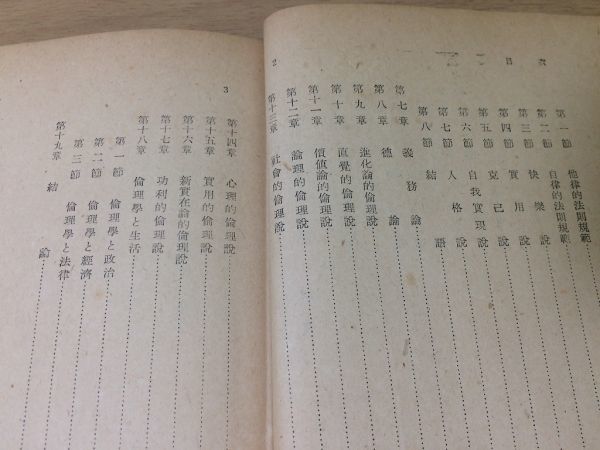 目次
2
第一節 他律的法則規範
第二節 自律的法則規範
第二節 快樂說
第三節 實用說
第四節 克己說
第五節 自我實現說
第六節 人格說
第七節 結語
第八節
第七章 義務論
第八章 德論
第九章 進化論的倫理說
第十章 直覺的倫理說
第十一章 價値論的倫理說
第十二章 論理的倫理說
第十三章 社會的倫理說
3
第十四章 心理的倫理說
第十五章 實用的倫理說
第十六章 新實在論的倫理說
第十七章 功利的倫理說
第十八章 倫理學と生活
第一節 倫理學と政治
第二節 倫理學と經濟
第三節 倫理學と法律
第十九章 結論